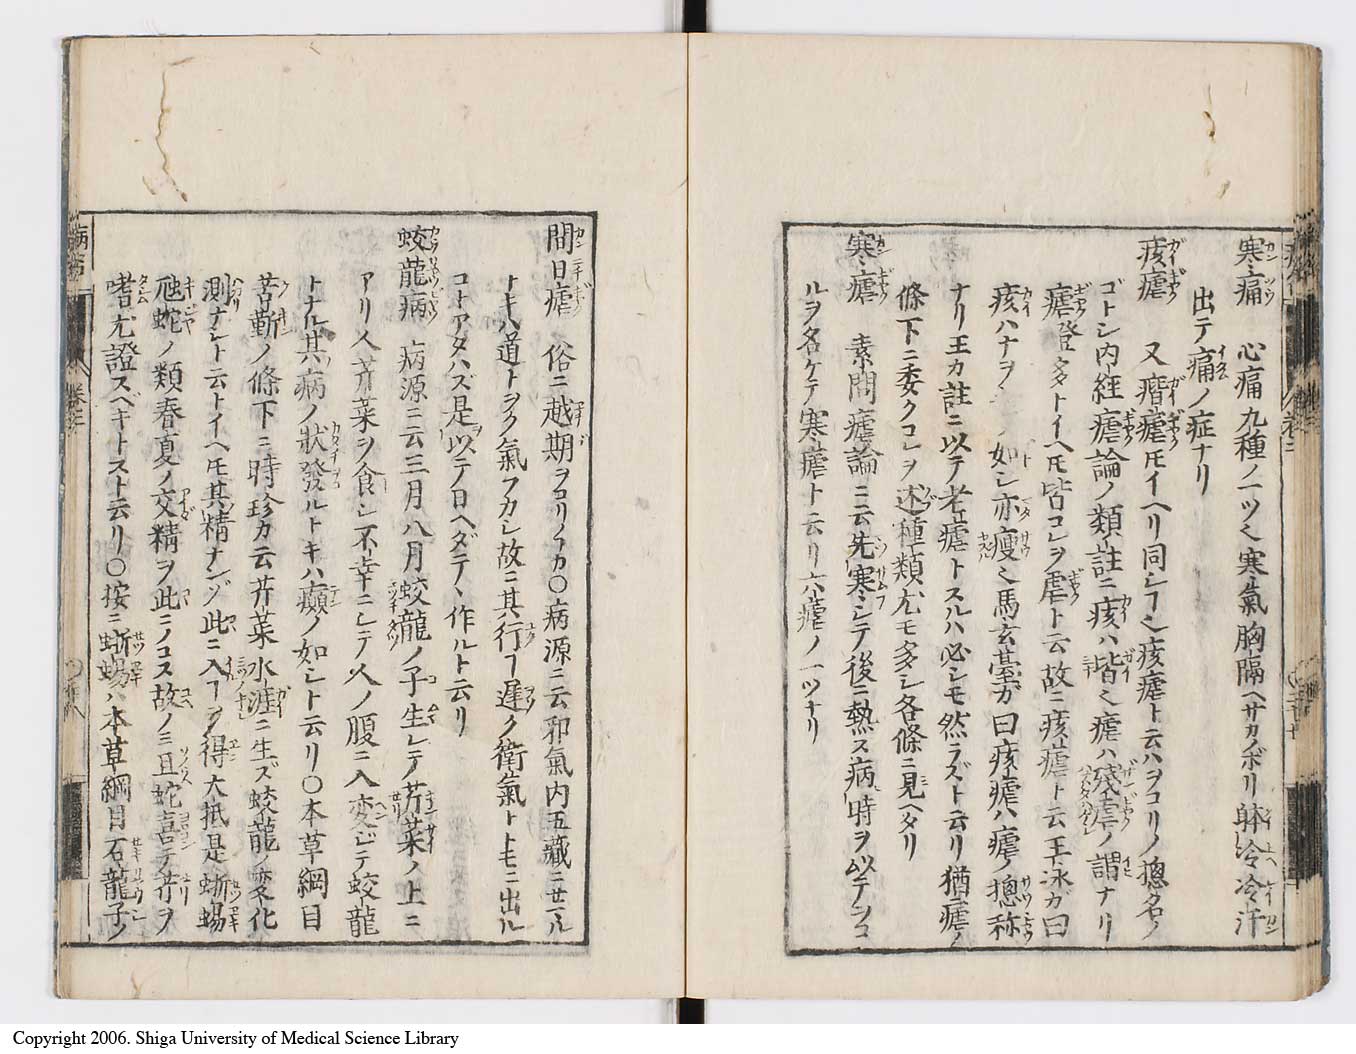 寒痛 心痛九種ノ一ツ也寒氣胸隔ヘサカノボリ躰冷冷汗
出テ痛ノ症ナリ
痎瘧 又瘖瘧𪜈イヘリ同シヿ也痎瘧ト云ハヲコリノ摠名ノ
ゴトシ内経瘧論ノ類註ニ痎ハ皆也瘧ハ殘虐ノ謂ナリ
瘧證多トイヘ𪜈皆コレヲ虐ト云故ニ痎瘧ト云王冰ガ曰
痎ハナヲ ノ如シ亦瘦也馬玄臺ガ曰痎瘧ハ瘧ノ摠称
ナリ王カ註ニ以テ老瘧トスルハ必シモ然ラズト云リ猶瘧ノ
條下ニ委クコレヲ述種類尤モ多シ各條ニ見ヘタリ
寒瘧 素問瘧論ニ云先寒シテ後ニ熱ス病時ヲ以テヲコ
ルヲ名ケテ寒瘧ト云リ六瘧ノ一ツナリ
間日瘧 俗ニ越期ヲコリノコカ〇病源ニ云邪氣内五藏ニ
トキハ道トヲク氣フカシ故ニ其行ヿ遲ク衛氣トトモニ出ル
コトアタハズ是以テ日ヘダテヽ作ルト云リ
蛟龍病 病源ニ云三月八月蛟龍ノ子生レテ芹菜ノ上ニ
アリ人芹菜ヲ食シ不幸ニシテ人ノ腹ニ入変ジテ蛟龍
トナル其病ノ狀發ルトキハ癲ノ如シト云リ〇本草綱目
苦蘄ノ條下ニ時珍カ云芹菜水涯ニ生ズ蛟龍ノ変化
測ナシト云トイヘ𪜈其精ナンゾ此ニ入ヿヲ得大抵是蜥蜴
虺蛇ノ類春夏ノ交精ヲ此ニノコス故ノミ且蛇喜テ芹ヲ
嗜尤證スベキトスト云リ〇按ニ蜥蜴ハ本草綱目石龍子ノ
Copyright 2006. Shiga University of Medical Science Library